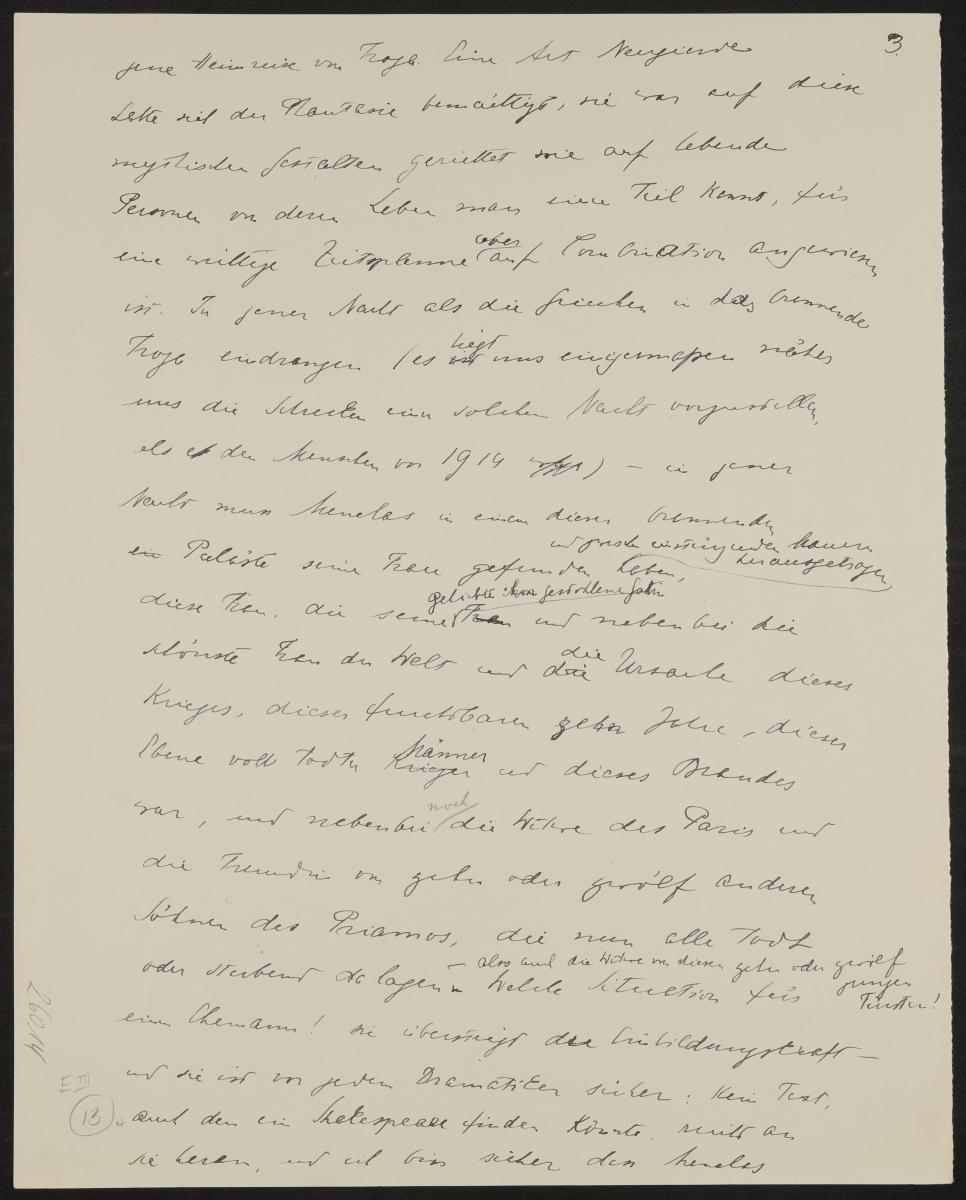 3.
jene Heimreise von Troja. Eine Art Neugierde
hatte sich der Phantasie bemächtigt, sie war auf diese
mythischen Gestalten gerichtet wie auf lebende
Personen von deren Leben man einen Teil kennt, für
eine wichtige Zeitspanne aber auf Combination angewiesen
ist. In jener Nacht als die Griechen in das brennende
Troja eindrangen (es liegt uns einigermassen näher
uns die Schrecken einer solchen Nacht vorzustellen,
als den Menschen vor 1914) – in jener
Nacht muss Menelas in einem dieser brennenden
und einstürzenden Mauern herausgetragen
Paläste seine Frau gefunden haben,
geliebte gestohlene Gattin
diese Frau, die seine und nebenbei die
schönste Frau der Welt und die Ursache dieses
Krieges, dieser furchtbaren zehn Jahre, dieser
Ebene voll todter Männer und dieses Brandes
war, und nebenbei noch die Witwe des Paris und
die Freundin von zehn oder zwölf anderen
Söhnen des Priamos, die nun alle todt
oder sterbend da lagen – also auch die Witwe von diesen zehn oder zwölf jungen Fürsten!
Welche Situation für
einen Ehemann! sie übersteigt die Einbildungskraft –
und sie ist vor jedem Dramatiker sicher: Kein Text,
auch den ein Shakespeare finden könnte, reicht an
sie heran, und ich bin sicher dass Menelas
26014
E III
13